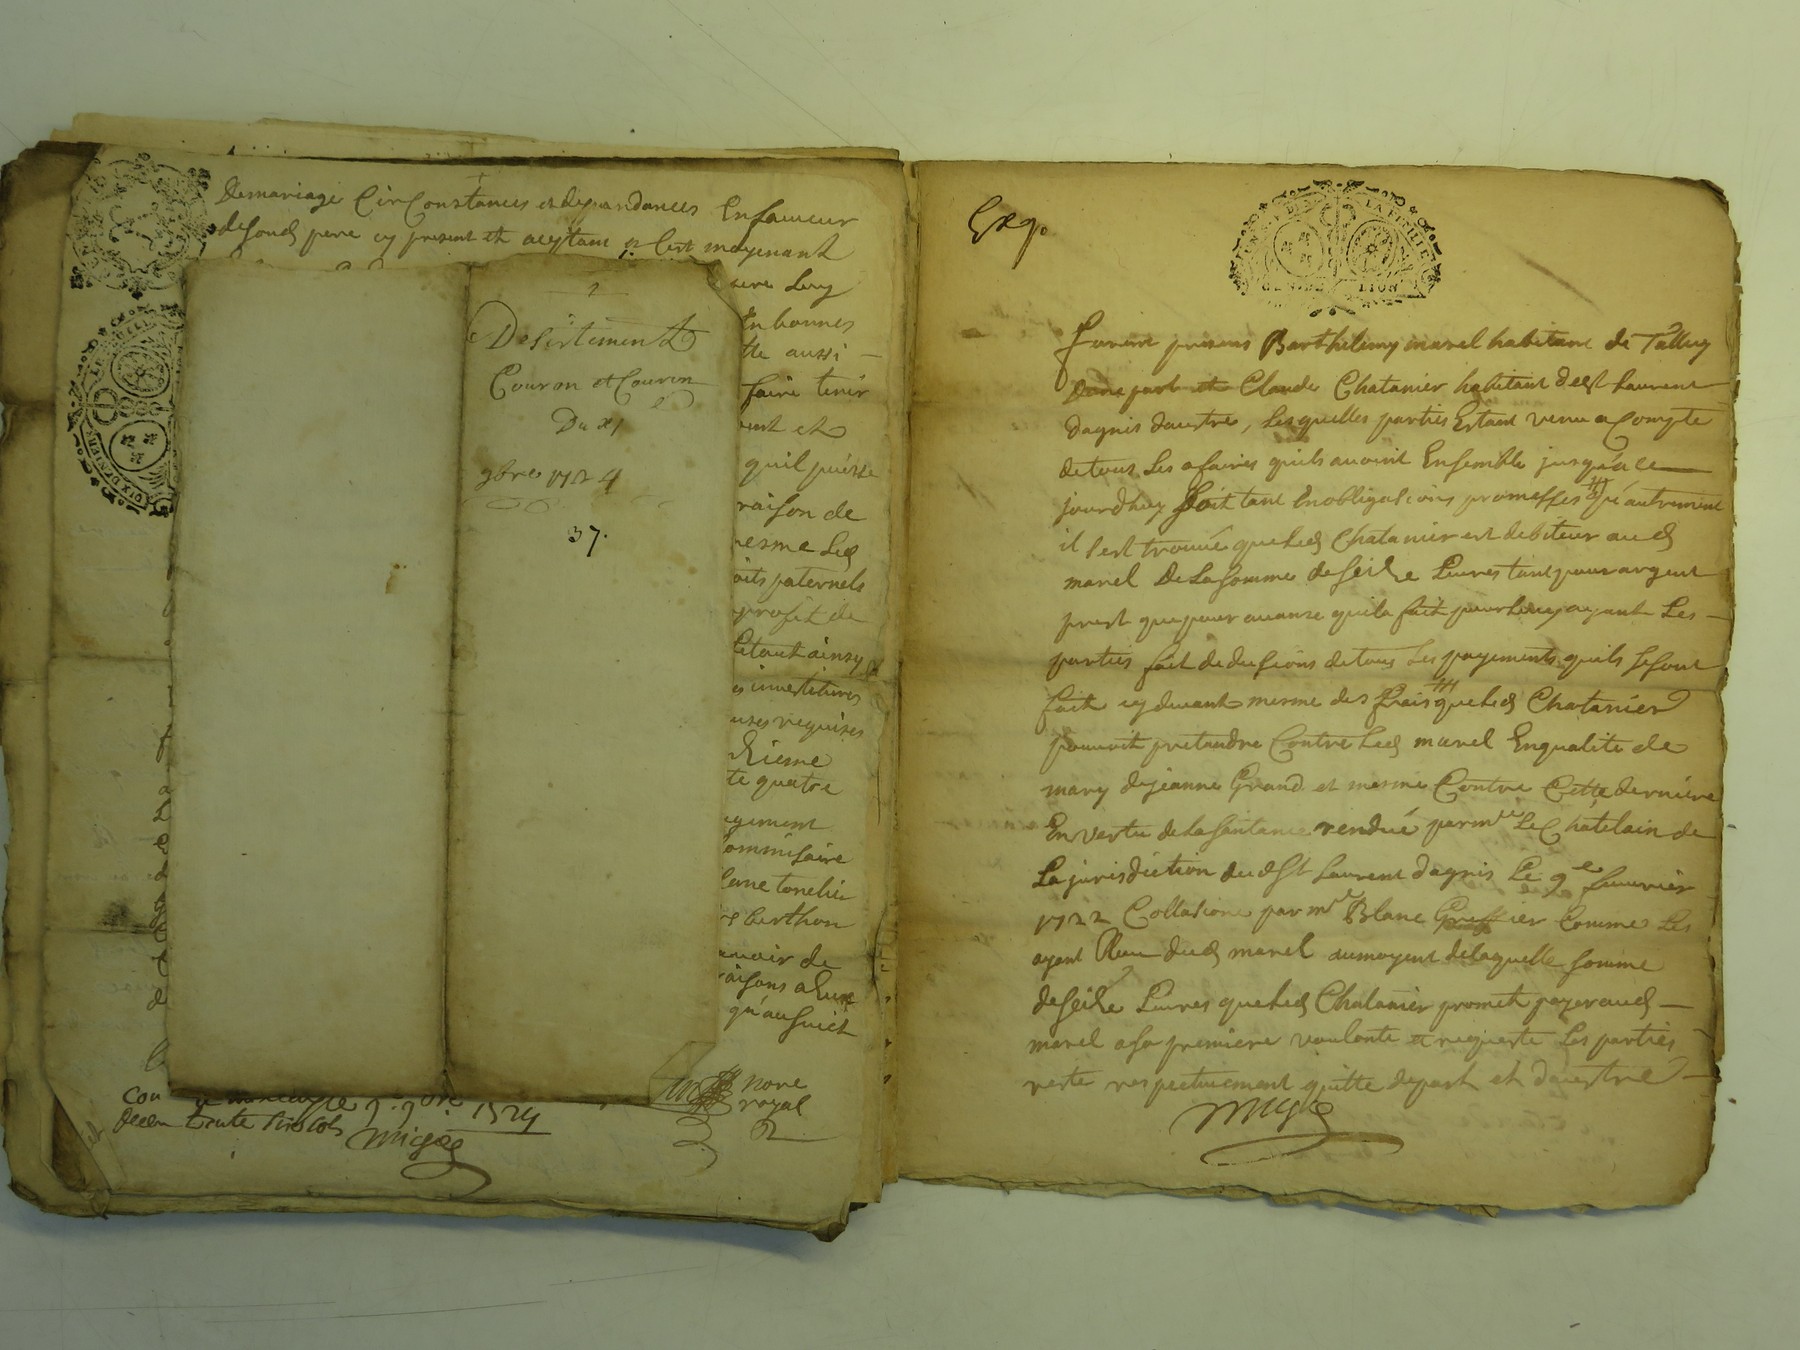 demariage Circonstances et depandances Enfaueur
desond pere cy present et aceptant et c'est moyenant
Luy
En bonnes
aussi
faire tenir
et
quil puisse
raison de
mesme Led
paternels
profit de
Le tout ainsy
investitures
requises
te quatre
Commisaire
tonelier
berthon
de
raisons
qu'au
nore
royal
con
trente six sols
Migea
Desistement
Couron et Couron
Du xi
9bre 1724
37.
Exp.
GEN. DE LION
Furent présens Barthelemy marel habitant de Talluy
dune part et Claude Chatanier habitant de st Laurent
dagnis dautre, Lesquelles parties Estant venu a Compte
de tous Les afaires quils auoint Ensemble jusqu'a ce
jourdhuy soit tant En obligations promesses qu'autrement
il s'est trouué que Led Chatanier est debiteur aud
marel De La somme de seize Liures tant pour argent
prest que pour auance quil a fait pour Luy ayant Les
parties fait dedusions de tous Les payements quils se sont
fait cy deuant mesme des frais que Led Chatanier
pouuoit pretandre Contre Led marel En qualite de
mary de jeanne Grand et mesme Contre Cette derniere
En vertu de la santance rendue par mre Le Chatelain de
La jurisdiction dud st Laurent dagnis Le 9e feurier
1722 Collasione par mre Blanc Greffier Comme Les
ayant Reeu dud marel au moyent de laquelle somme
de seize Liures que Led Chatanier promet payer aud
marel a sa premiere voulonte et requeste Les parties
reste respectiuement quitte de part et dautre
Migea